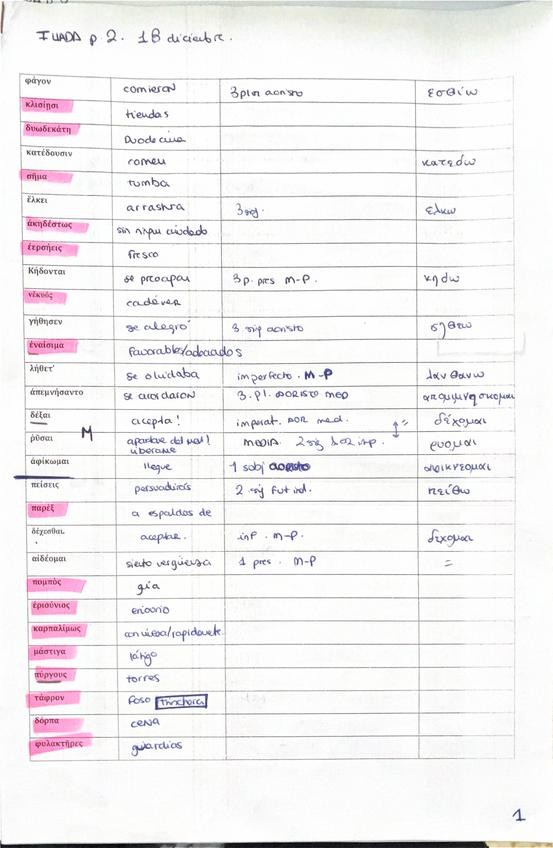 ILIADA p 2. 18 diciembre.
φάγον comieron 3 pl aoristo εσθίω
κλισίῃσι tiendas
δυωδεκάτη Duodecima
κατέδουσιν comeu κατεδω
σῆμα tumba
ἕλκει arrastra 3 sg. ελκω
ἀκηδέστως sin ningún cuidado
ἐερσήεις fresco
Κήδονται se preocupan 3 p. pres M-P. κηδω
νέκυός cadáver
γήθησεν se alegró 3 sig aoristo γηθεω
ἐναίσιμα favorables/adecuados
λήθετ' se olvidaba imperfecto. M-P λανθανω
ἀπεμνήσαντο se acordaron 3. pl. AORISTO MED απομιμνησκομαι
δέξαι acepta! imperat. AOR med. δέχομαι
ῥῦσαι M apartar del mal! liberame MEDIA. 2 sig AOR imp. ρυομαι
ἀφίκωμαι llegue 1 subj aoristo αφικνεομαι
πείσεις persuadirás 2 sig fut ind. πείθω
παρέξ a espaldas de
δέχεσθαι. aceptar. inf. M-P. δεχομαι
αἰδέομαι siento vergüenza 1 pres. M-P =
πομπὸς guía
ἐριούνιος eriounio
καρπαλίμως con viveza/rapidamente.
μάστιγα látigo
πύργους torres
τάφρον foso trinchera
δόρπα cena
φυλακτῆρες guardias
1